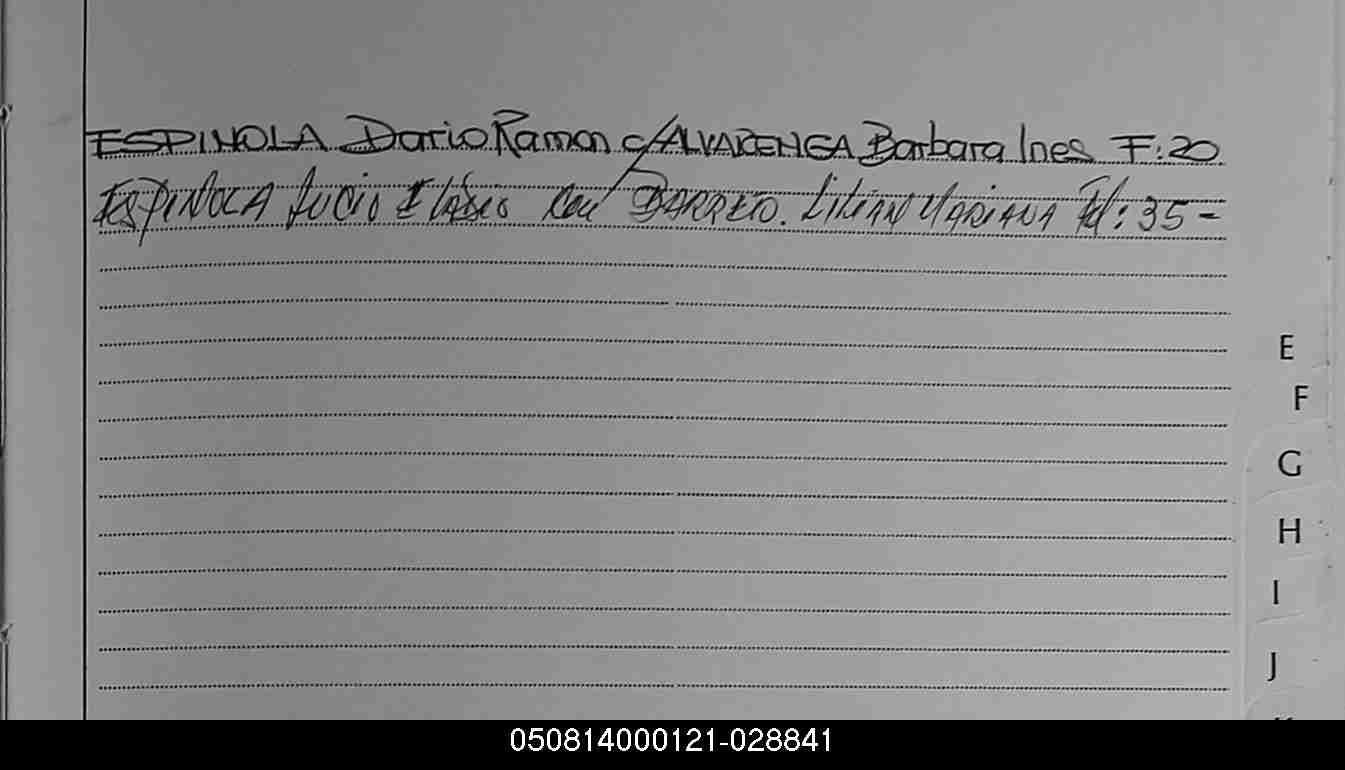 ESPINOLA Dario Ramon c/ALVARENGA Barbara Ines F:20
ESPINOLA Lucio con BARRETO. LILIAN MARIANA Fl: 35-
E
F
G
H
I
J
050814000121-028841